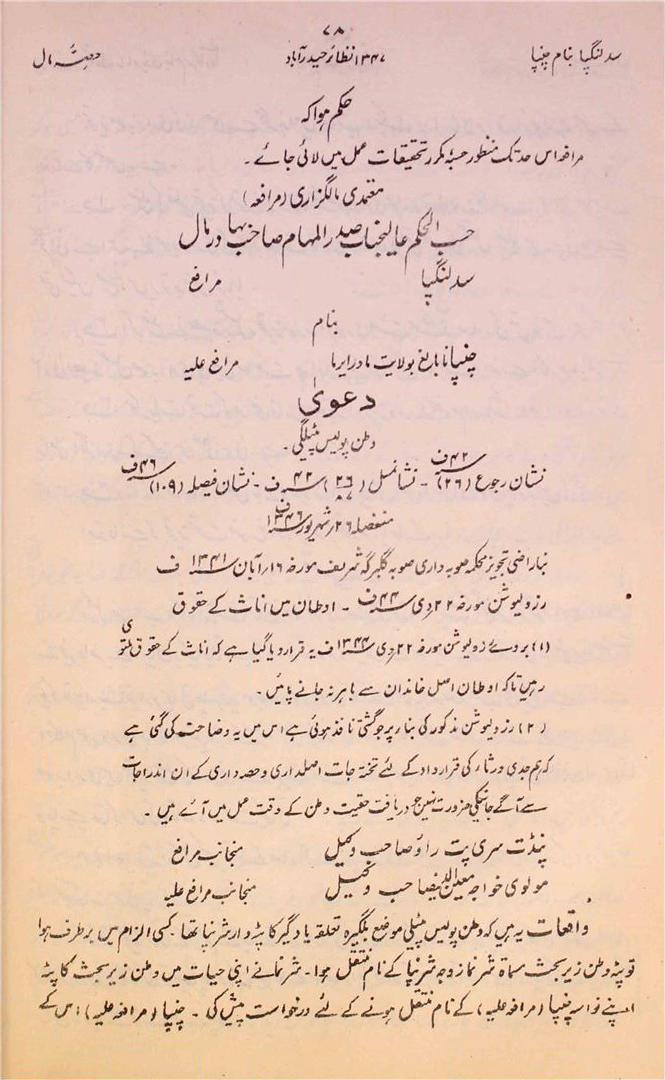 ۷۸
سدلنگپا بنام چنپا ۱۳۴۷ نظائر حیدرآباد حصۂ مال
حکم ہوا کہ
مرافعہ اس حد تک منظور حسبہٖ مکرر تحقیقات عمل میں لائی جائے۔
معتمدی مالگزاری (مرافعہ)
حسب الحکم عالیجناب صدر المہام صاحب بہادر مال
سدلنگپا مرافع
بنام
چنپا نابالغ بولایت مادر ایرما مرافع علیہ
دعویٰ
وطن پولیس پٹیلگی۔
نشان رجوع (۲۶) ۴۲ف نشانمثل (۲۶) ۴۲ف ۔ نشان فیصلہ (۱۰۹) ۴۶ف
منفصلہ ۲۶ شہریور ۱۳۴۶ف
بناراضی تجویز محکمہ صوبہ داری صوبہ گلبرگہ شریف مورخہ ۱۶؍آبان ۱۳۴۱ ف
رزولیوشن مورخہ ۲۲؍دی ۴۴ف ۔ اوطان میں اناث کے حقوق
(۱) بروے رزولیوشن مورخہ ۲۲؍دی ۱۳۴۴ف یہ قرار دیا گیا ہے کہ اناث کے حقوق ملتوی
رہیں تاکہ اوطان اصل خاندان سے باہر نہ جانے پائیں۔
(۲) رزولیوشن مذکور کی بناء پر جو گشتی نافذ ہوئی ہے اس میں یہ وضاحت کی گئی ہے
کہ ہم جدی ورثاء کی قرارداد کے لئے تختہ جات اصلداری و حصہ داری کے ان اندراجات
سے آگے جانیکی ضرورت نہیں جو دریافت حقیت وطن کے وقت عمل میں آئے ہیں۔
پنڈت سری پت راؤ صاحب وکیل منجانب مرافع
مولوی خواجہ معین الدین صاحب وکیل منجانب مرافع علیہ
واقعات یہ ہیں کہ وطن پولیس پٹیلی موضع بلگیرہ تعلقہ یادگیر کا پٹہ دار شرنپا تھا۔ کسی الزام میں برطرف ہوا
تو پٹہ وطن زیر بحث مسماۃ شرنما زوجہ شرنپا کے نام منتقل ہوا۔ شرنمانے اپنی حیات میں وطن زیر بحث کا پٹہ
اپنے نواسہ چنپا (مرافعہ علیہ) کے نام منتقل ہونے کے لئے درخواست پیش کی۔ چنپا (مرافعہ علیہ) اس کے